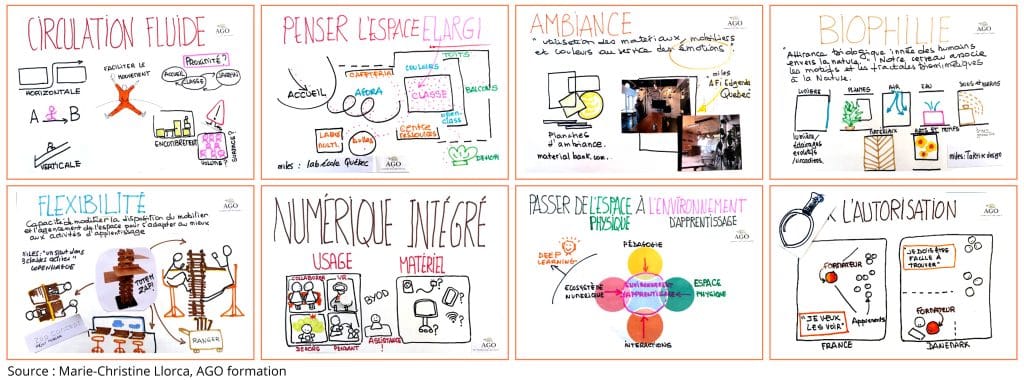 CIRCULATION FLUIDE
AGO
FACILITER LE
MOUVEMENT
PROXIMITÉ?
ACCUEIL
CLASSE
HORIZONTALE
A B
VERTICALE
ENCOMBREMENT
VOLUME?
SURFACE?
PENSER L'ESPACE ELARGI
AGO
TOITS
COULOIRS
CAFETERIA
ACCUEIL
AGORA
CLASSE
BALCONS
OPEN
CLASS
LABO
MULTI.
BULLES
CENTRE
RESSOURCES
DEHORS
miles : lab.école Québec
AMBIANCE
AGO
"utilisation des materiaux, mobiliers
et couleurs au service des émotions
miles
AFi Edgenda
Quebec
Planches
d'ambiance.
material bank.com..
BIOPHILIE
AGO
"Attirance biologique innée des humains
envers la nature". Notre cerveau associe
les motifs et les fractales biomimétiques
à la Nature.
LUMIERE
PLANTES
AIR
EAU
SONS et
lumière/
éclairages
évolutifs
/circadiens.
MATERIAUX
ARTS ET MOTIFS
miles: Tarkix design
FLEXIBILITÉ
AGO
Capacité de modifier la disposition du mobilier
et l'agencement de l'espace pour s'adapter au mieux
aux activités d'apprentissage
COPENHAGUE
TOTEM
ZAP!
RANGER
NUMÉRIQUE INTÉGRÉ
USAGE
MATÉRIEL
COLLABORER
VR
BYOD
DEHORS
PENDANT
Assistance
!
AGO
PASSER DE L'ESPACE À L'ENVIRONNEMENT
PHYSIQUE D'APPRENTISSAGE
AGO
DEEP
LEARNING
PÉDAGOGIE
ECOSYSTÈME
NUMERIQUE
ENVIRONNEMENT
D'APPRENTISSAGE
ESPACE
PHYSIQUE
INTERACTIONS
L'AUTORISATION
AGO
FORMATEUR
"JE DOIS ÊTRE
FACILE À
TROUVER"
"JE VEUX
LES VOIR"
Apprenants
FORMATEUR
FRANCE
DANEMARK
Source : Marie-Christine Llorca, AGO formation